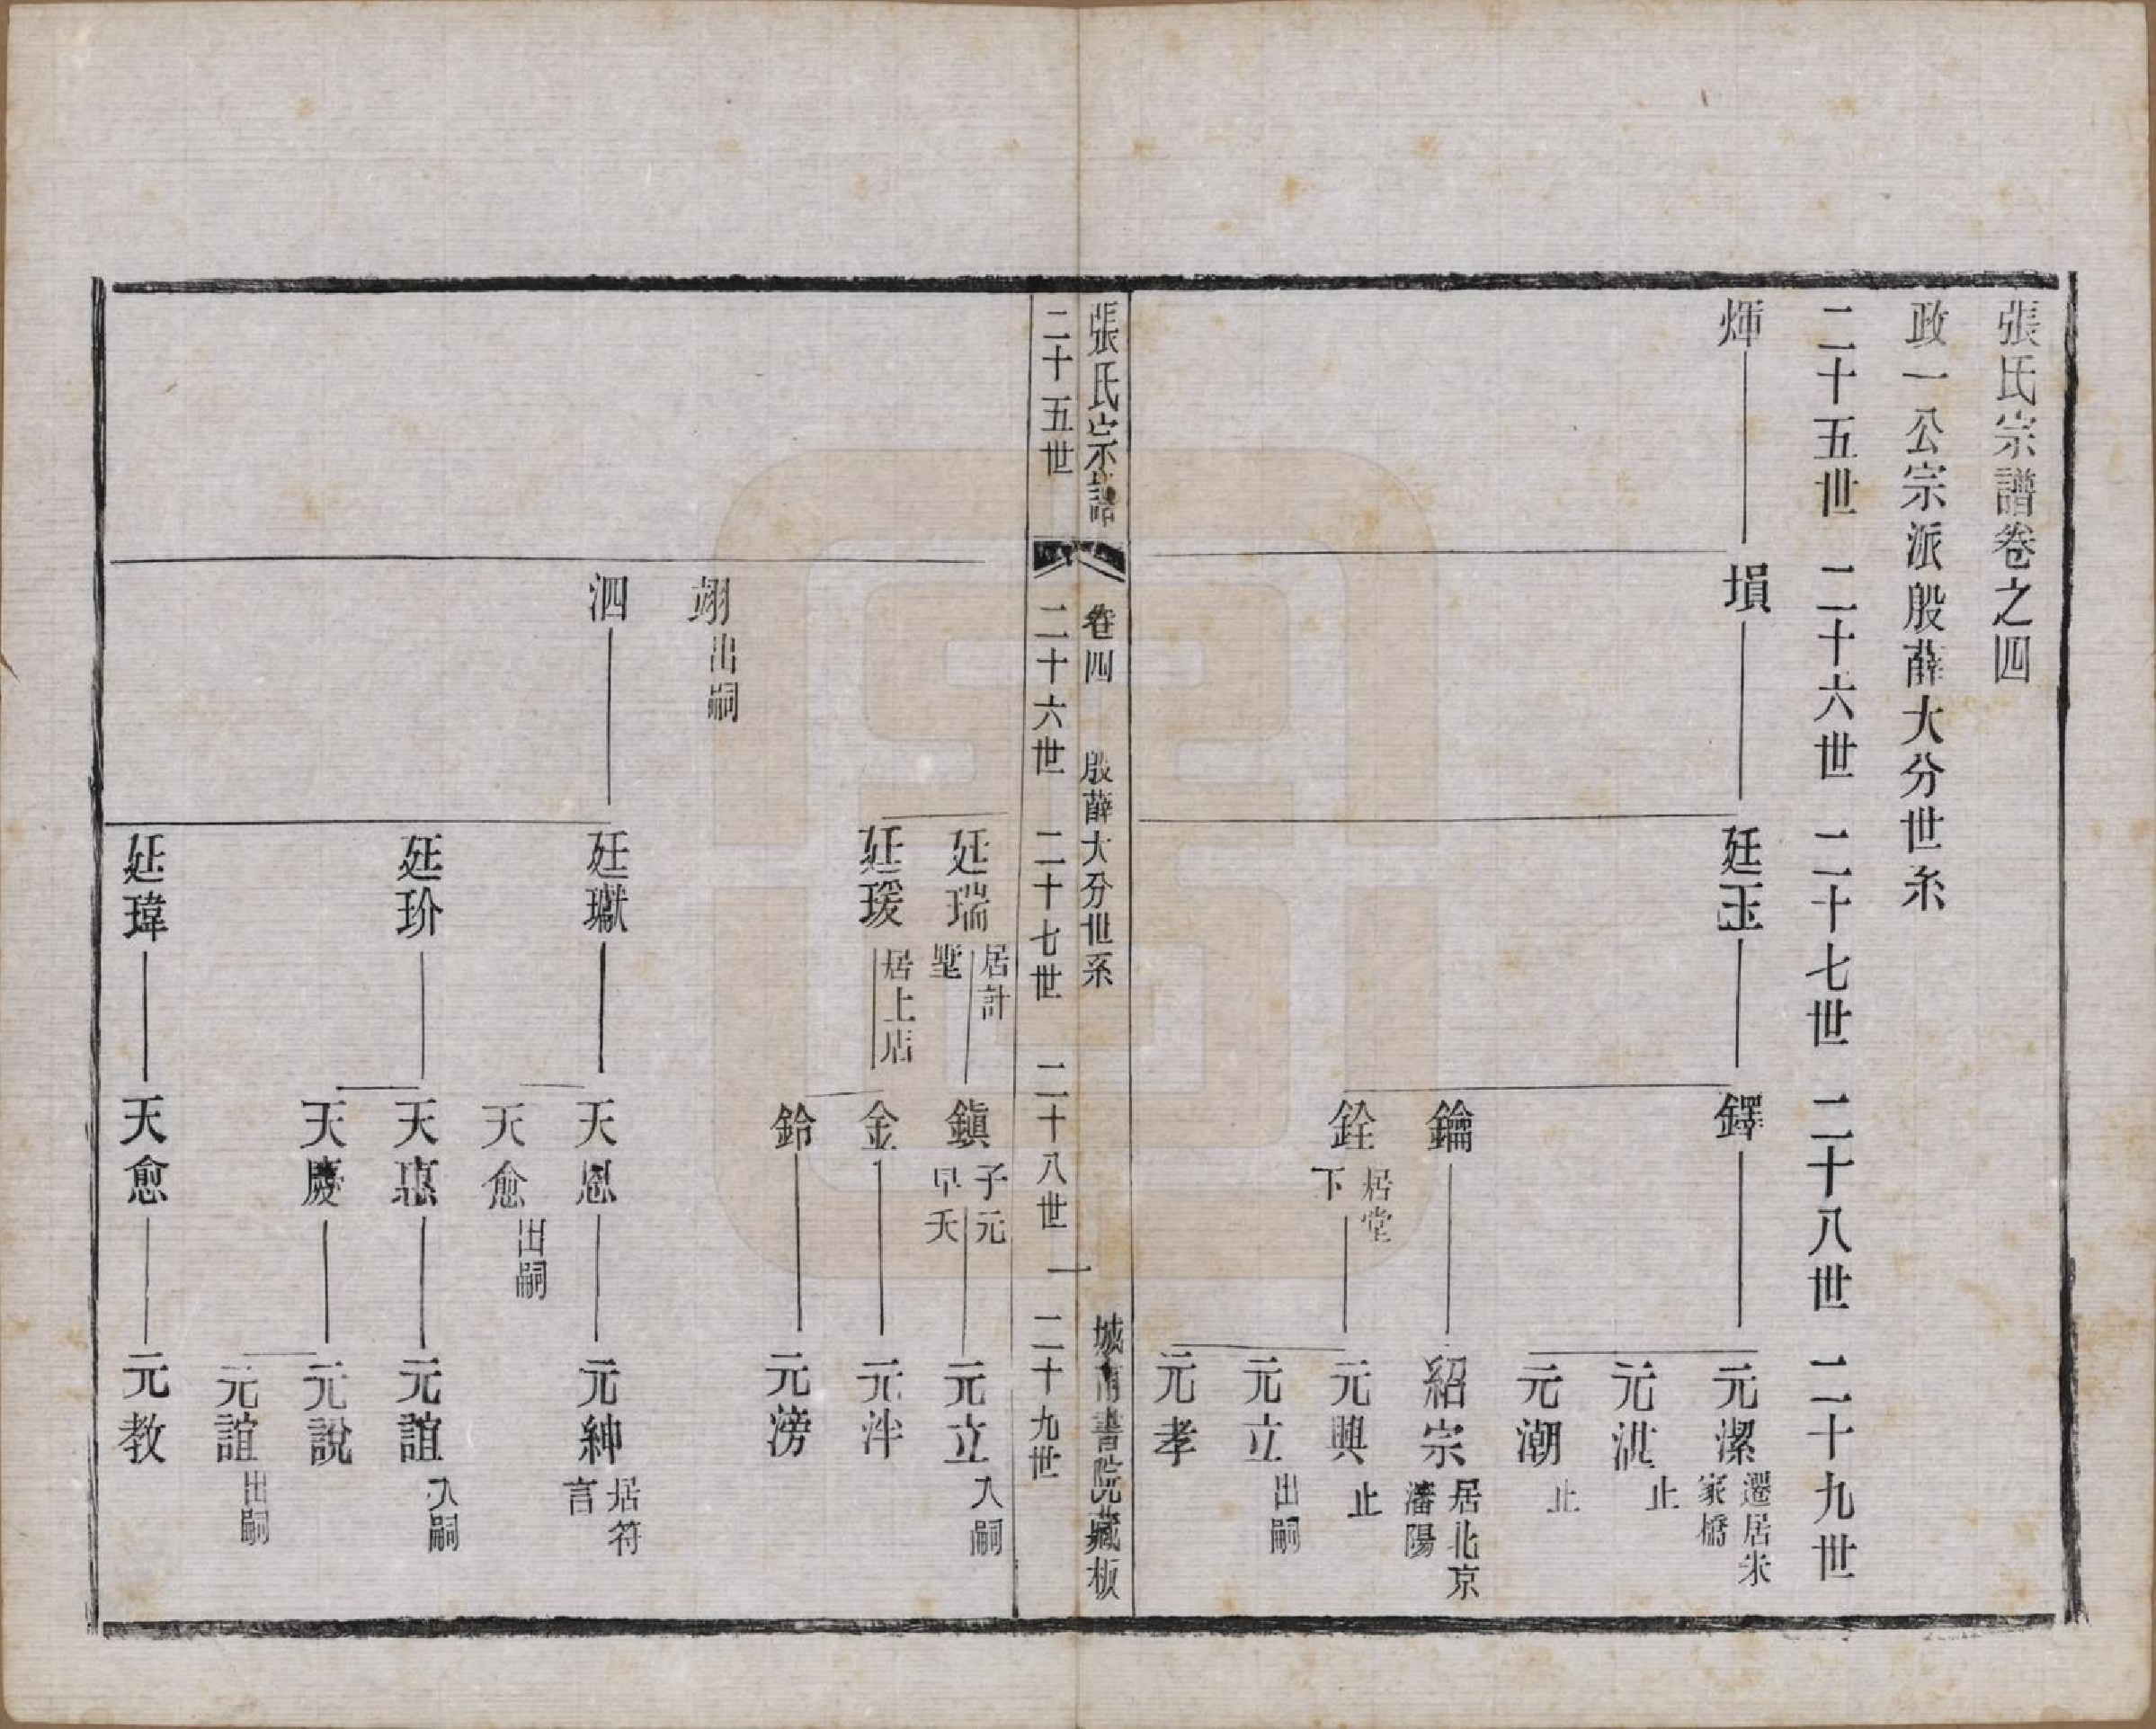 張氏宗譜卷之四
政一公宗派殷薛大分世系
二十五世 二十六世 二十七世 二十八世 二十九世
煇 塤 廷玉 鐸 元潔 遷居米家橋
元沘 止
元潮 止
鑰 紹宗 居北京瀋陽
銓 居堂下 元興 止
元立 出嗣
元孝
張氏宗譜 卷四 殷薛大分世系 一 城南書院藏板
二十五世 二十六世 二十七世 二十八世 二十九世
廷瑞 居計墅 鎮 子元早夭 元立 入嗣
廷瑗 居上店 金 元泮
鈴 元滂
翊 出嗣
泗 廷瓛 天恩 元紳 居符言
天愈 出嗣
廷玠 天惠 元誼 入嗣
天慶 元說
元誼 出嗣
廷瑋 天愈 元教